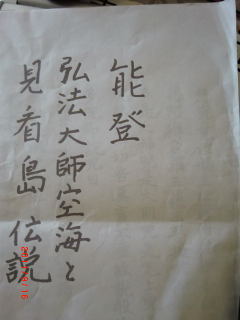 能登
弘法大師空海と
見看島伝説